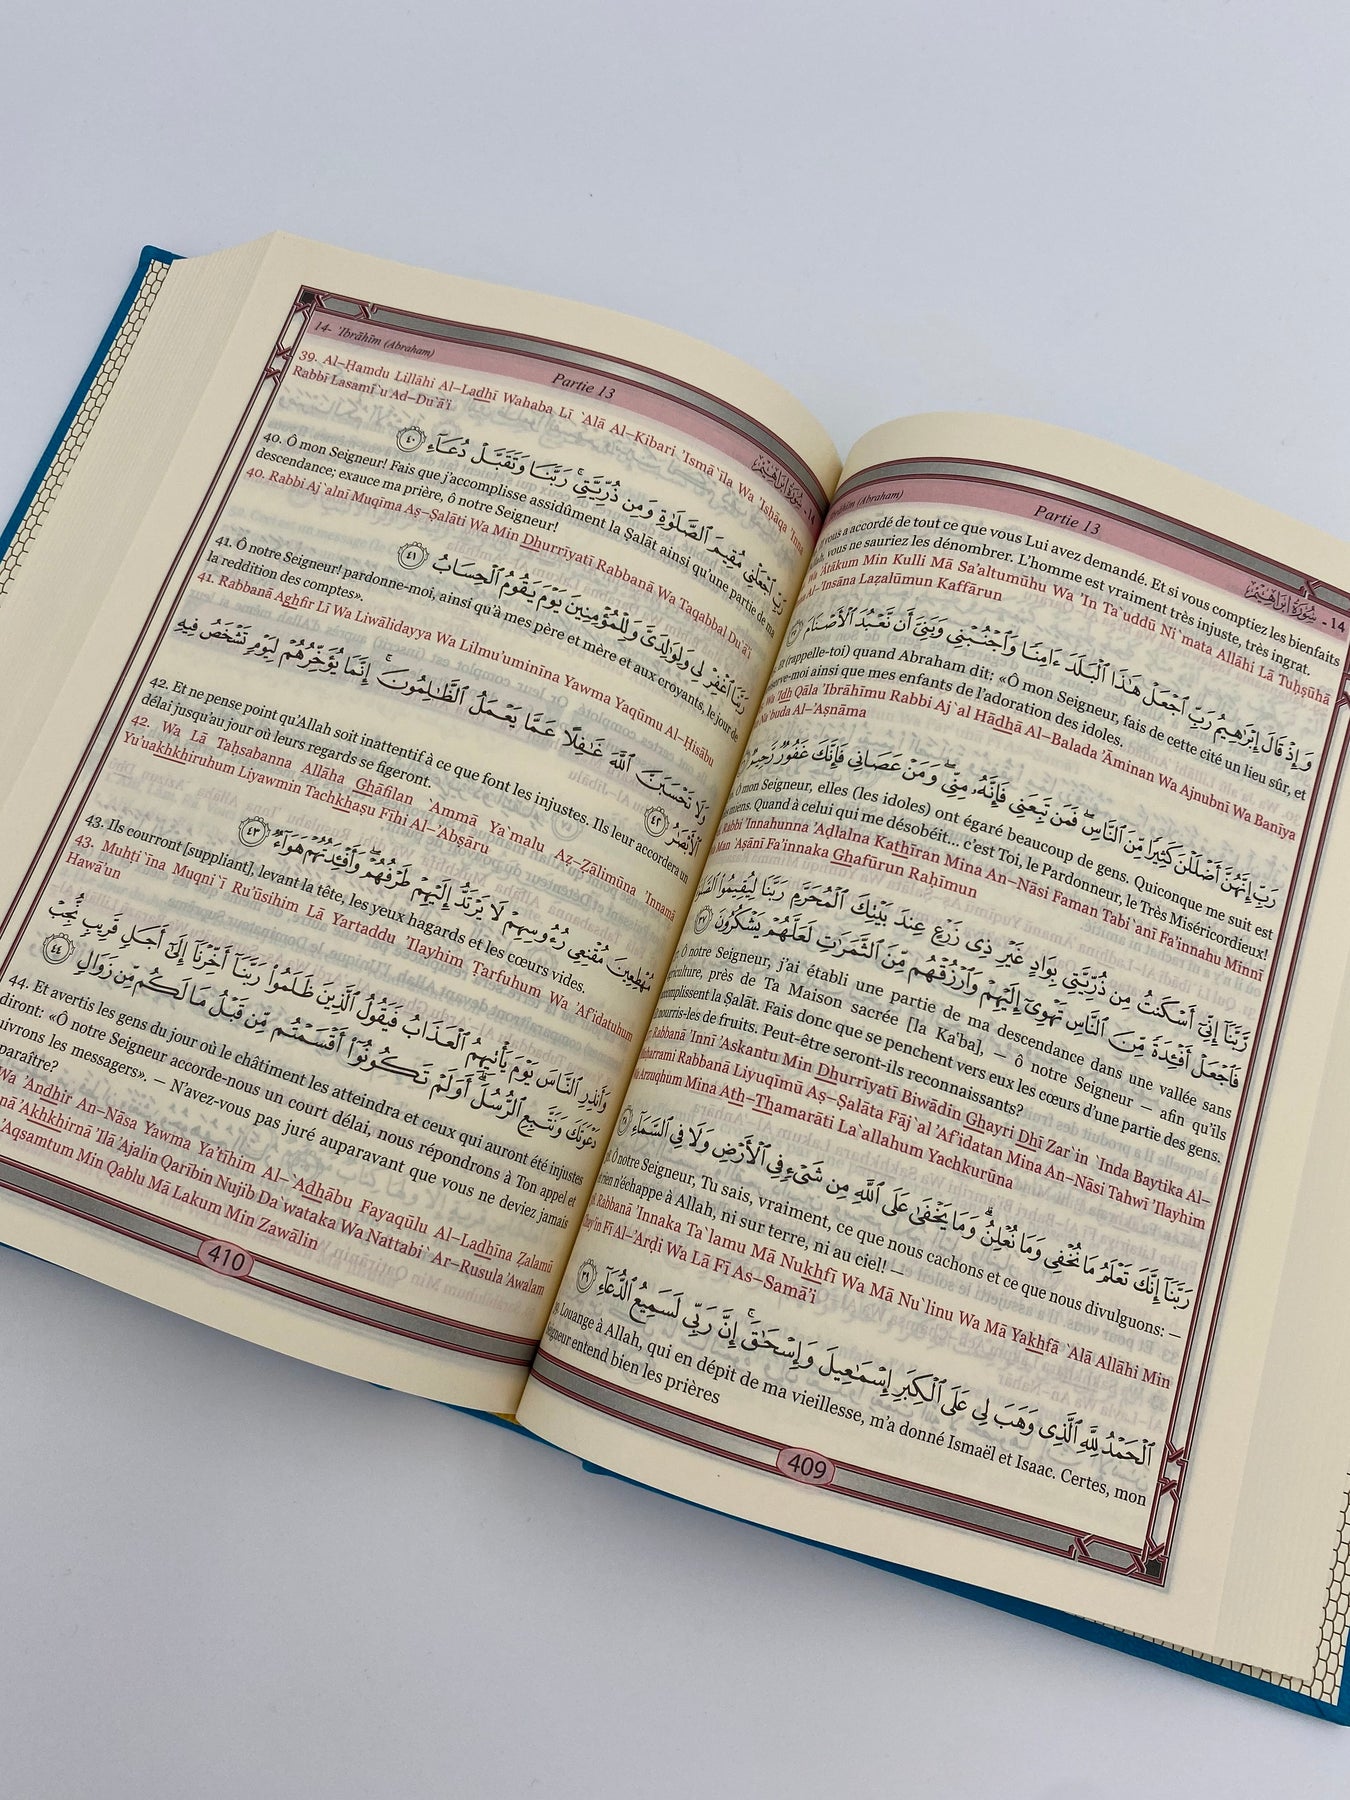 14- 'Ibrāhīm (Abraham)
Partie 13
١٤ - سُورَةُ إِبْرَاهِيمَ
39. Al–Ḥamdu Lillāhi Al–Ladhī Wahaba Lī `Alá Al–Kibari 'Ismā`īla Wa 'Isḥāqa 'Inna
Rabbī Lasamī`u Ad–Du`ā'i
رَبِّ ٱجْعَلْنِى مُقِيمَ ٱلصَّلَوٰةِ وَمِن ذُرِّيَّتِى ۚ رَبَّنَا وَتَقَبَّلْ دُعَآءِ ٤٠
40. Ô mon Seigneur! Fais que j'accomplisse assidûment la Ṣalāt ainsi qu'une partie de ma
descendance; exauce ma prière, ô notre Seigneur!
40. Rabbi Aj`alnī Muqīma Aṣ–Ṣalāti Wa Min Dhurrīyatī Rabbanā Wa Taqabbal Du`ā'i
رَبَّنَا ٱغْفِرْ لِى وَلِوَٰلِدَىَّ وَلِلْمُؤْمِنِينَ يَوْمَ يَقُومُ ٱلْحِسَابُ ٤١
41. Ô notre Seigneur! pardonne-moi, ainsi qu'à mes père et mère et aux croyants, le jour de
la reddition des comptes».
41. Rabbanā Aghfir Lī Wa Liwālidayya Wa Lilmu'uminīna Yawma Yaqūmu Al–Ḥisābu
وَلَا تَحْسَبَنَّ ٱللَّهَ غَٰفِلًا عَمَّا يَعْمَلُ ٱلظَّٰلِمُونَ ۚ إِنَّمَا يُؤَخِّرُهُمْ لِيَوْمٍ تَشْخَصُ فِيهِ
ٱلْأَبْصَٰرُ ٤٢
42. Et ne pense point qu'Allah soit inattentif à ce que font les injustes. Ils leur accordera un
délai jusqu'au jour où leurs regards se figeront.
42. Wa Lā Taḥsabanna Allāha Ghāfilan `Ammā Ya`malu Aẓ–Ẓālimūna 'Innamā
Yu'uakhkhiruhum Liyawmin Tachkhaṣu Fīhi Al–'Abṣāru
مُهْطِعِينَ مُقْنِعِى رُءُوسِهِمْ لَا يَرْتَدُّ إِلَيْهِمْ طَرْفُهُمْ ۖ وَأَفْـِٔدَتُهُمْ هَوَآءٌ ٤٣
43. Ils courront [suppliant], levant la tête, les yeux hagards et les cœurs vides.
43. Muhṭi`īna Muqni`ī Ru'ūsihim Lā Yartaddu 'Ilayhim Ṭarfuhum Wa 'Af'idatuhum
Hawā'un
وَأَنذِرِ ٱلنَّاسَ يَوْمَ يَأْتِيهِمُ ٱلْعَذَابُ فَيَقُولُ ٱلَّذِينَ ظَلَمُوا۟ رَبَّنَآ أَخِّرْنَآ إِلَىٰٓ أَجَلٍ قَرِيبٍ نُّجِبْ
دَعْوَتَكَ وَنَتَّبِعِ ٱلرُّسُلَ ۗ أَوَلَمْ تَكُونُوٓا۟ أَقْسَمْتُم مِّن قَبْلُ مَا لَكُم مِّن زَوَالٍ ٤٤
44. Et avertis les gens du jour où le châtiment les atteindra et ceux qui auront été injustes
diront: «Ô notre Seigneur accorde-nous un court délai, nous répondrons à Ton appel et
uivrons les messagers». — N'avez-vous pas juré auparavant que vous ne deviez jamais
paraître?
Wa 'Andhir An–Nāsa Yawma Ya'tīhim Al–`Adhābu Fayaqūlu Al–Ladhīna Ẓalamū
nā 'Akhkhirnā 'Ilá 'Ajalin Qarībin Nujib Da`wataka Wa Nattabi` Ar–Rusula 'Awalam
'Aqsamtum Min Qablu Mā Lakum Min Zawālin
410
rāhīm (Abraham)
Partie 13
١٤ - سُورَةُ إِبْرَاهِيمَ
vous a accordé de tout ce que Lui avez demandé. Et si vous comptiez les bienfaits
ah, vous ne sauriez les dénombrer. L'homme est vraiment très injuste, très ingrat.
Wa 'Ātākum Min Kulli Mā Sa'altumūhu Wa 'In Ta`uddū Ni`mata Allāhi Lā Tuḥṣūhā
Al–'Insāna Laẓalūmun Kaffārun
وَإِذْ قَالَ إِبْرَٰهِيمُ رَبِّ ٱجْعَلْ هَٰذَا ٱلْبَلَدَ ءَامِنًا وَٱجْنُبْنِى وَبَنِىَّ أَن نَّعْبُدَ ٱلْأَصْنَامَ ٣٥
Et (rappelle-toi) quand Abraham dit: «Ô mon Seigneur, fais de cette cité un lieu sûr, et
serve-moi ainsi que mes enfants de l'adoration des idoles.
Wa 'Idh Qāla 'Ibrāhīmu Rabbi Aj`al Hādhā Al–Balada 'Āminan Wa Ajnubnī Wa Banīya
Na`buda Al–'Aṣnāma
رَبِّ إِنَّهُنَّ أَضْلَلْنَ كَثِيرًا مِّنَ ٱلنَّاسِ ۖ فَمَن تَبِعَنِى فَإِنَّهُۥ مِنِّى ۖ وَمَنْ عَصَانِى فَإِنَّكَ غَفُورٌ رَّحِيمٌ
Ô mon Seigneur, elles (les idoles) ont égaré beaucoup de gens. Quiconque me suit est
miens. Quand à celui qui me désobéit… c'est Toi, le Pardonneur, le Très Miséricordieux!
Rabbi 'Innahunna 'Aḍlalna Kathīran Mina An–Nāsi Faman Tabi`anī Fa'innahu Minnī
Man `Aṣānī Fa'innaka Ghafūrun Raḥīmun
رَّبَّنَآ إِنِّىٓ أَسْكَنتُ مِن ذُرِّيَّتِى بِوَادٍ غَيْرِ ذِى زَرْعٍ عِندَ بَيْتِكَ ٱلْمُحَرَّمِ رَبَّنَا لِيُقِيمُوا۟ ٱلصَّلَ
فَٱجْعَلْ أَفْـِٔدَةً مِّنَ ٱلنَّاسِ تَهْوِىٓ إِلَيْهِمْ وَٱرْزُقْهُم مِّنَ ٱلثَّمَرَٰتِ لَعَلَّهُمْ يَشْكُرُونَ ٣٧
Ô notre Seigneur, j'ai établi une partie de ma descendance dans une vallée sans
riculture, près de Ta Maison sacrée [la Ka'ba], — ô notre Seigneur — afin qu'ils
ccomplissent la Ṣalāt. Fais donc que se penchent vers eux les cœurs d'une partie des gens.
nourris-les de fruits. Peut-être seront-ils reconnaissants?
Rabbanā 'Innī 'Askantu Min Dhurrīyatī Biwādin Ghayri Dhī Zar`in `Inda Baytika Al–
uḥarrami Rabbanā Liyuqīmū Aṣ–Ṣalāta Fāj`al 'Af'idatan Mina An–Nāsi Tahwī 'Ilayhim
a Arzuqhum Mina Ath–Thamarāti La`allahum Yachkurūna
رَبَّنَآ إِنَّكَ تَعْلَمُ مَا نُخْفِى وَمَا نُعْلِنُ ۗ وَمَا يَخْفَىٰ عَلَى ٱللَّهِ مِن شَىْءٍ فِى ٱلْأَرْضِ وَلَا فِى ٱلسَّمَآءِ ٣٨
Ô notre Seigneur, Tu sais, vraiment, ce que nous cachons et ce que nous divulguons: —
rien n'échappe à Allah, ni sur terre, ni au ciel! —
Rabbanā 'Innaka Ta`lamu Mā Nukhfī Wa Mā Nu`linu Wa Mā Yakhfá `Alá Allāhi Min
Chay'in Fī Al–'Arḍi Wa Lā Fī As–Samā'i
ٱلْحَمْدُ لِلَّهِ ٱلَّذِى وَهَبَ لِى عَلَى ٱلْكِبَرِ إِسْمَٰعِيلَ وَإِسْحَٰقَ ۚ إِنَّ رَبِّى لَسَمِيعُ ٱلدُّعَآءِ ٣٩
Louange à Allah, qui en dépit de ma vieillesse, m'a donné Ismaël et Isaac. Certes, mon
eigneur entend bien les prières
409